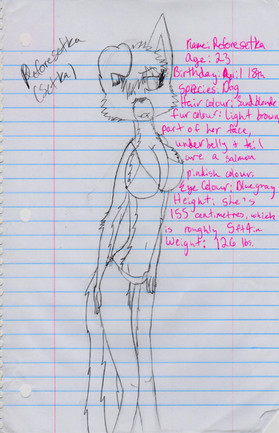 Reforesetka
(Setka)
Name: Reforesetka
age: 23
Birthday: April 18th
Species: Dog
Hair colour:
fur colour: Light brown
part of her face,
underbelly + tail
are a salmon
pinkish colour.
Eye Colour: Bluegray
Height: she is
155 centimetres, which
is roughly 5ft4in
Weight: 126 lbs.